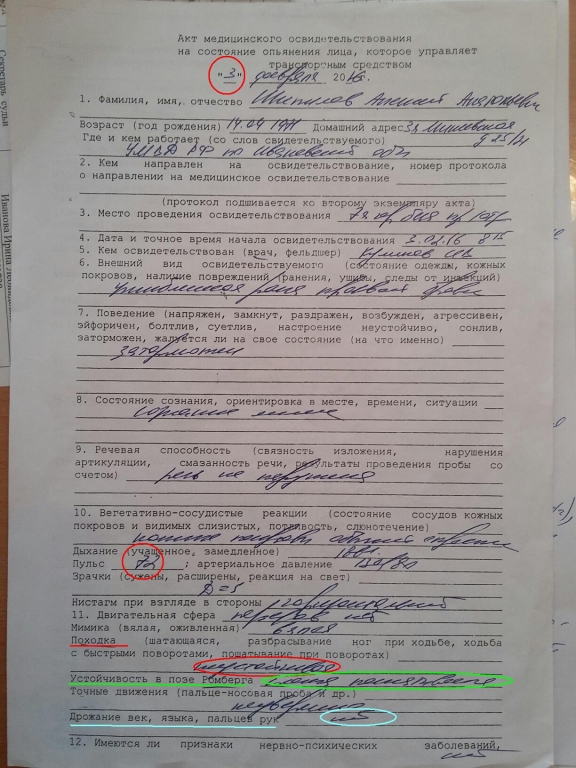 Акт медицинского освидетельствования
на состояние опьянения лица, которое управляет
транспортным средством
"3" февраля 2016.
1. Фамилия, имя, отчество Шипилов Алексей
Возраст (год рождения) 14.04 1971 Домашний адрес
Где и кем работает (со слов свидетельствуемого) д 25/
УМВД РФ по Ивановской обл
2. Кем направлен на освидетельствование, номер протокола
о направлении на медицинское освидетельствование
(протокол подшивается ко второму экземпляру акта)
3. Место проведения освидетельствования
4. Дата и точное время начала освидетельствования 3.02.16 8 15
5. Кем освидетельствован (врач, фельдшер)
6. Внешний вид освидетельствуемого (состояние одежды, кожных
покровов, наличие повреждений (ранения, ушибы, следы от инъекций)
Ушибленная рана правой брови
7. Поведение (напряжен, замкнут, раздражен, возбужден, агрессивен,
эйфоричен, болтлив, суетлив, настроение неустойчиво, сонлив,
заторможен, жалуется ли на свое состояние (на что именно)
заторможен
8. Состояние сознания, ориентировка в месте, времени, ситуации
9. Речевая способность (связность изложения, нарушения
артикуляции, смазанность речи, результаты проведения пробы со
счетом) речь не нарушена
10. Вегетативно-сосудистые реакции (состояние сосудов кожных
покровов и видимых слизистых, потливость, слюнотечение)
кожные покровы обычной окраски
Дыхание (учащенное, замедленное) 18
Пульс 72 ; артериальное давление
Зрачки (сужены, расширены, реакция на свет)
D=S
Нистагм при взгляде в стороны горизонтальный
11. Двигательная сфера нет
Мимика (вялая, оживленная) вялая
Походка (шатающаяся, разбрасывание ног при ходьбе, ходьба
с быстрыми поворотами, пошатывание при поворотах)
неустойчивая
Устойчивость в позе Ромберга
Точные движения (пальце-носовая проба и др.)
неуверенно
Дрожание век, языка, пальцев рук нет
12. Имеются ли признаки нервно-психических заболеваний,
нет
Секретарь судьи
Иванова Ирина